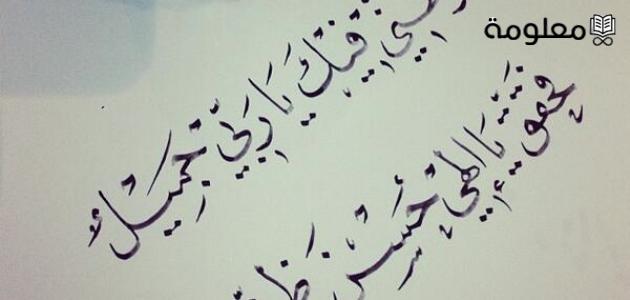 معلومة
فيك يَا رَبِّي جميلٌ
فحقق يَا إلهي حُسْن